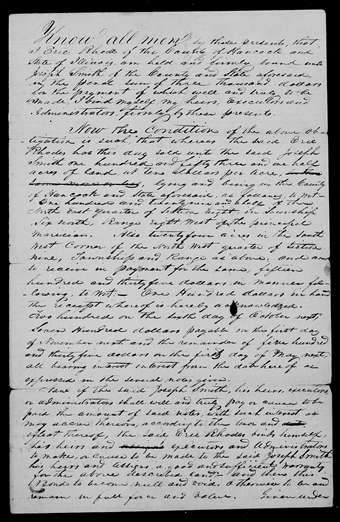 Know all men by these presents, that
I Eric Rhodes of the County of Hancock and
State of Illinois am held and firmly bound unto
Joseph Smith of the County and State aforesaid,
in the penal sum of three thousand dollars
for the payment of which well and truly to be
made I bind myself my heirs, Executors and
Administrators firmly by these presents.
Now the Condition of the above ob-
ligation is such, that whereas the said Eric
Rhodes has this day sold unto the said Joseph
Smith one hundred and fifty three and one half
acres of Land at ten dollars per acre,
lying and being in the County
of Hancock and State aforesaid as follows, to wit
One hundred and twenty nine and half of the
North East quarter of Section eight in Township
Six north, Range eight West of the principal
Meridian. Also twenty four acres in the South
West Corner of the North West quarter of Section
nine, Township and Range as above, and am
to receive in payment for the same, fifteen
hundred and thirty five dollars in manner fol-
lowing, to wit— One Hundred dollars in hand
the receipt whereof is hereby acknowledged.
Two hundred on the sixth day of October next.
Seven Hundred dollars payable in the first day
of November next and the remainder of five hundred
and thirty five dollars on the first day of May next,
all bearing interest from the date hereof as
expressed in the several notes given.
Now if the said Joseph Smith, his heirs, executors
or administrators shall well and truly pay or cause to be
paid the amount of said notes, with such interest as
may accrue thereon, according to the tenor and
effect thereof, the said Eric Rhodes binds himself,
his heirs executors and Administrators
to make, or cause to be made to the said Joseph Smith
his heirs and assigns, a good and sufficient warranty
for the above described land then this
Bond to become null and void, otherwise to be and
remain in full force and virtue. Given under